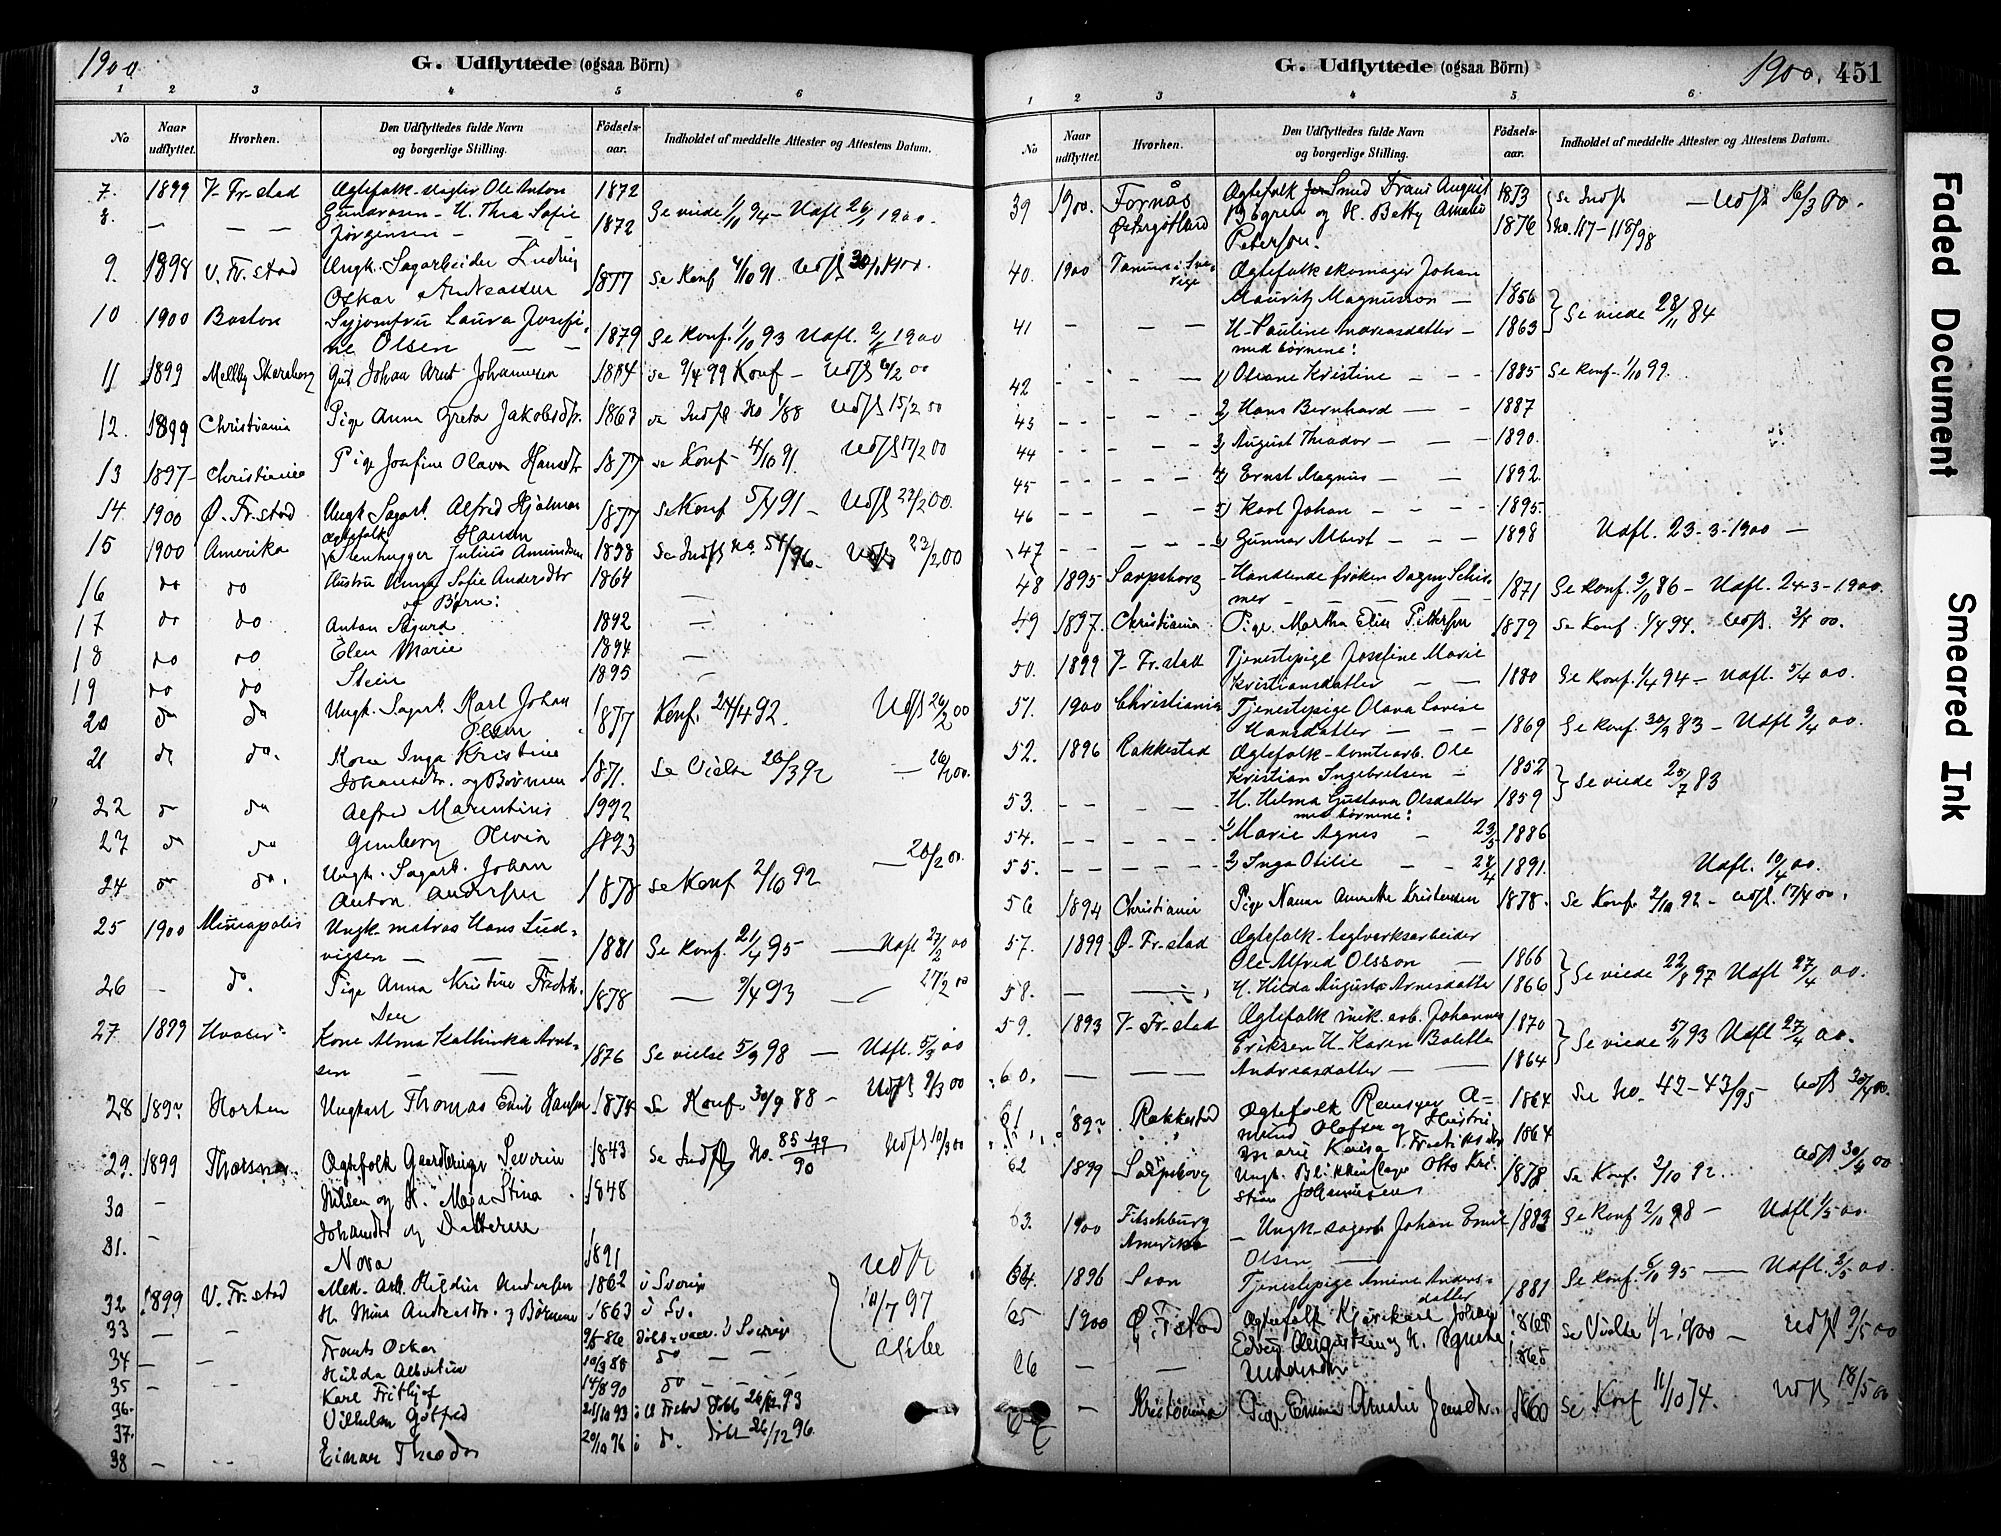 1900
G. Udflyttede (ogsaa Börn)
1 2 3 4 5 6
No Naar udflyttet. Hvorhen. Den Udflyttedes fulde Navn og borgerlige Stilling. Födselsaar. Indholdet af meddelte Attester og Attestens Datum.
7. 1899 V-Fr-stad Ægtefolk Ole Anton 1872
8. — — — Gundersen - H. Thea Sofie Se viede 1/10 94 - Udfl 1900.
Jørgensen — — 1872
9. 1898 V. Fr. stad Ungk. Sagarbeider Ludvig
Oskar Andreassen 1877 Se Konf 4/10 91. Udfl 30/1 1900.
10 1900 Boston Syjomfru Laura Josefi-
ne Olsen — — 1879 Se Konf. 1/10 93 Udfl. 1900
11 1899 Gut Johan Arnt Johannesen 1884 se 9/4 99 Konf - Udfl 6/2 00
12. 1899 Christiania Pige Anna Greta Jakobsdtr. 1863 se Indfl No 1/88 Udfl 15/2 00
13 1897 Christiania Pige Josefine Olava Hansdtr 1877 se Konf - 4/10 91. Udfl 17/2 00
14. 1900 Ø. Fr. stad Ungk Sagarb. Alfred Hjalmar
Hansen 1877 se Konf 5/4 91 - Udfl 22/2 00.
Ægtefolk
15 1900 Amerika Stenhugger Julius Amundsen 1898 Se Indfl No 54/96. Udfl 23/2 00
16 do do Hustru Anna Sofie Andersdtr 1864 —
og Børn:
17 do do Anton Sigurd 1892 —
18 do do Elen Marie 1894 —
19 do do Stein 1895
20 do do Ungk. Sagarb. Karl Johan
Olsen 1877 Konf. 24/4 92. Udfl 26/2 00
21 do do. Kone Inga Kristine
Johansdtr. og Børnene 1871. Se Vielse 26/3 92 — 26/2 00.
22 do do Alfred Marentius 1992
23 do do Gunborg Olivia 1893
24 do do. Ungk. Sagarb. Johan
Anton Andersen 1878 Se Konf 2/10 92 — 26/2 00.
25 1900 Mineapolis Ungk. matros Hans Lud-
vigsen — — — 1881 Se Konf. 21/4 95 — Udfl 27/2 00
26 — do. Pige Anna Kristine Fredrik-
sen 1878 — 9/4 93 — 27/2 00
27 1899 Hvaler Kone Alma Kathinka Arnt-
sen — — 1876 Se vielse 5/9 98 — Udfl. 5/3 00
28 189? Horten Ungkarl Thomas Emil Hansen 1874 Se Konf. 30/9 88 - Udfl 9/3 00
29. 1899 Ægtefolk Severin 1843 Se Indfl No. 85-79/90 Udfl 10/3 00
30 — Nilsen og H. Maja Stina 1848
Johansdtr og Datteren
31. — Nora 1891
32 1899 V. Fr. stad Mek. Arb. Andersen 1862 i Sverige Udfl
33 — — H. Mina Andersdtr. og Børnene 1863 i Sv. 10/7 97
34 — — Frants Oskar 9/5 86 i Sverige
35 — — Hilda Albertine 10/3 88 do — —
36. Karl Frithjof 14/8 90 do — — —
37. Vilhelm Gotfred 21/10 93 i V Frstad døbt 26/12 93
38 — — Einar Theodor 20/10 96 i do. døbt 26/12 96.
G. Udflyttede (ogsaa Börn)
1900. 451
1 2 3 4 5 6
No Naar udflyttet. Hvorhen. Den Udflyttedes fulde Navn og borgerlige Stilling. Födselsaar. Indholdet af meddelte Attester og Attestens Datum.
39 1900. Fornås Ægtefolk Smed Frans August 1873 Se Indfl — Udfl 16/3 00.
Østergötland og H. Betty Amalie 1876 No. 117-118/98
Peterson.
40. 1900 Tanum i Sve-
rige Ægtefolk skomager Johan
Mauritz Magnusson — 1856
41 — — — H. Pauline Mareasdatter — 1863 Se viede 28/11 84
med børnene:
42 - - - - 1) Oleane Kristine - - - 1885 Se Konf. 1/10 99.
43 - - - - 2) Hans Bernhard - - - 1887
44 - - - - 3) August Theodor - - - 1890.
45 - - - - 4) Ernst Magnus - - 1892.
46 - - - 5) Karl Johan - - - 1895.
47 - - - - 6) Gunnar Albert - - 1898 Udfl. 23-3-1900 —
48 1895 Sarpsborg Handlende frøken Dagny Schir-
mer — — — — 1871 Se Konf. 3/10 86 - Udfl. 24-3-1900.
49 1897. Christiania Pige Martha Elise Pettersen 1879 se Konf. 1/4 94. Udfl. 3/4 00.
50. 1899 V-Fr. stad Tjenestepige Josefine Marie
Kristiansdatter — — 1880 Se Konf. 1/4 94 - Udfl. 5/4 00.
51. 1900 Christiania Tjenestepige Olava Lovise
Hansdatter — — — 1869 Se Konf. 30/9 83 - Udfl 9/4 00.
52. 1896 Rakkestad Ægtefolk - tomtearb. Ole
Kristian Ingebretsen — 1852
53. — — — H. Helma Gustava Olsdatter 1859 Se viede 25/7 83
med børnene:
54. - - - - 1) Marie Agnes - 23/5 1886
55. - - - - 2) Inga Otilie - - 24/4 1891. Udfl. 10/4 00.
56 1894 Christiania Pige Nanna Annette Kristensen 1878. Se Konf. 2/10 92 - Udfl. 17/4 00.
57. 1899 Ø-Fr-stad Ægtefolk - teglverksarbeider
Ole Alfred Olsson — 1866
58. — — H. Hilda Augusta Arnesdatter 1866 Se viede 22/8 97 Udfl 27/4 00.
59. 1893 V-Fr-stad Ægtefolk mek. arb. Johannes 1870
Eriksen H. Karen Bolette Se viede 5/11 93 Udfl 27/4 00.
60. — — Andreasdatter — — 1864
61 189? Rakkestad Ægtefolk A- 1864 Se No. 42-43/95 - Udfl 30/4 00.
mund Olafsen og Hustru
Marie Lovisa 1864
62 1899 Sarpsborg Ungk. Blikkenslager Otto Kri-
stian Johannesen 1878 Se Konf. 2/10 92. Udfl 30/4 00
63. 1900 Fitschburg
Amerika Ungk-sagarb Johan Emil 1883 Se Konf 2/10 98 - Udfl 1/5 00.
Olsen —
64. 1896 Soon Tjenestepige Amine Anders-
datter 1881 Se Konf. 6/10 95 — Udfl. 2/5 00.
65 1900 Ø. Frstad Ægtefolk Kjørekarl Johan 1868 Se Vielse 11/2 1900 - Udfl 9/5 00
66 — — og H. Agnete 1865
Andersdtr
67 — Kristiania Pige Emma Amalie Jensdtr. 1860 Se Konf 11/10 74. Udfl 18/5 00
Faded Document
Smeared Ink